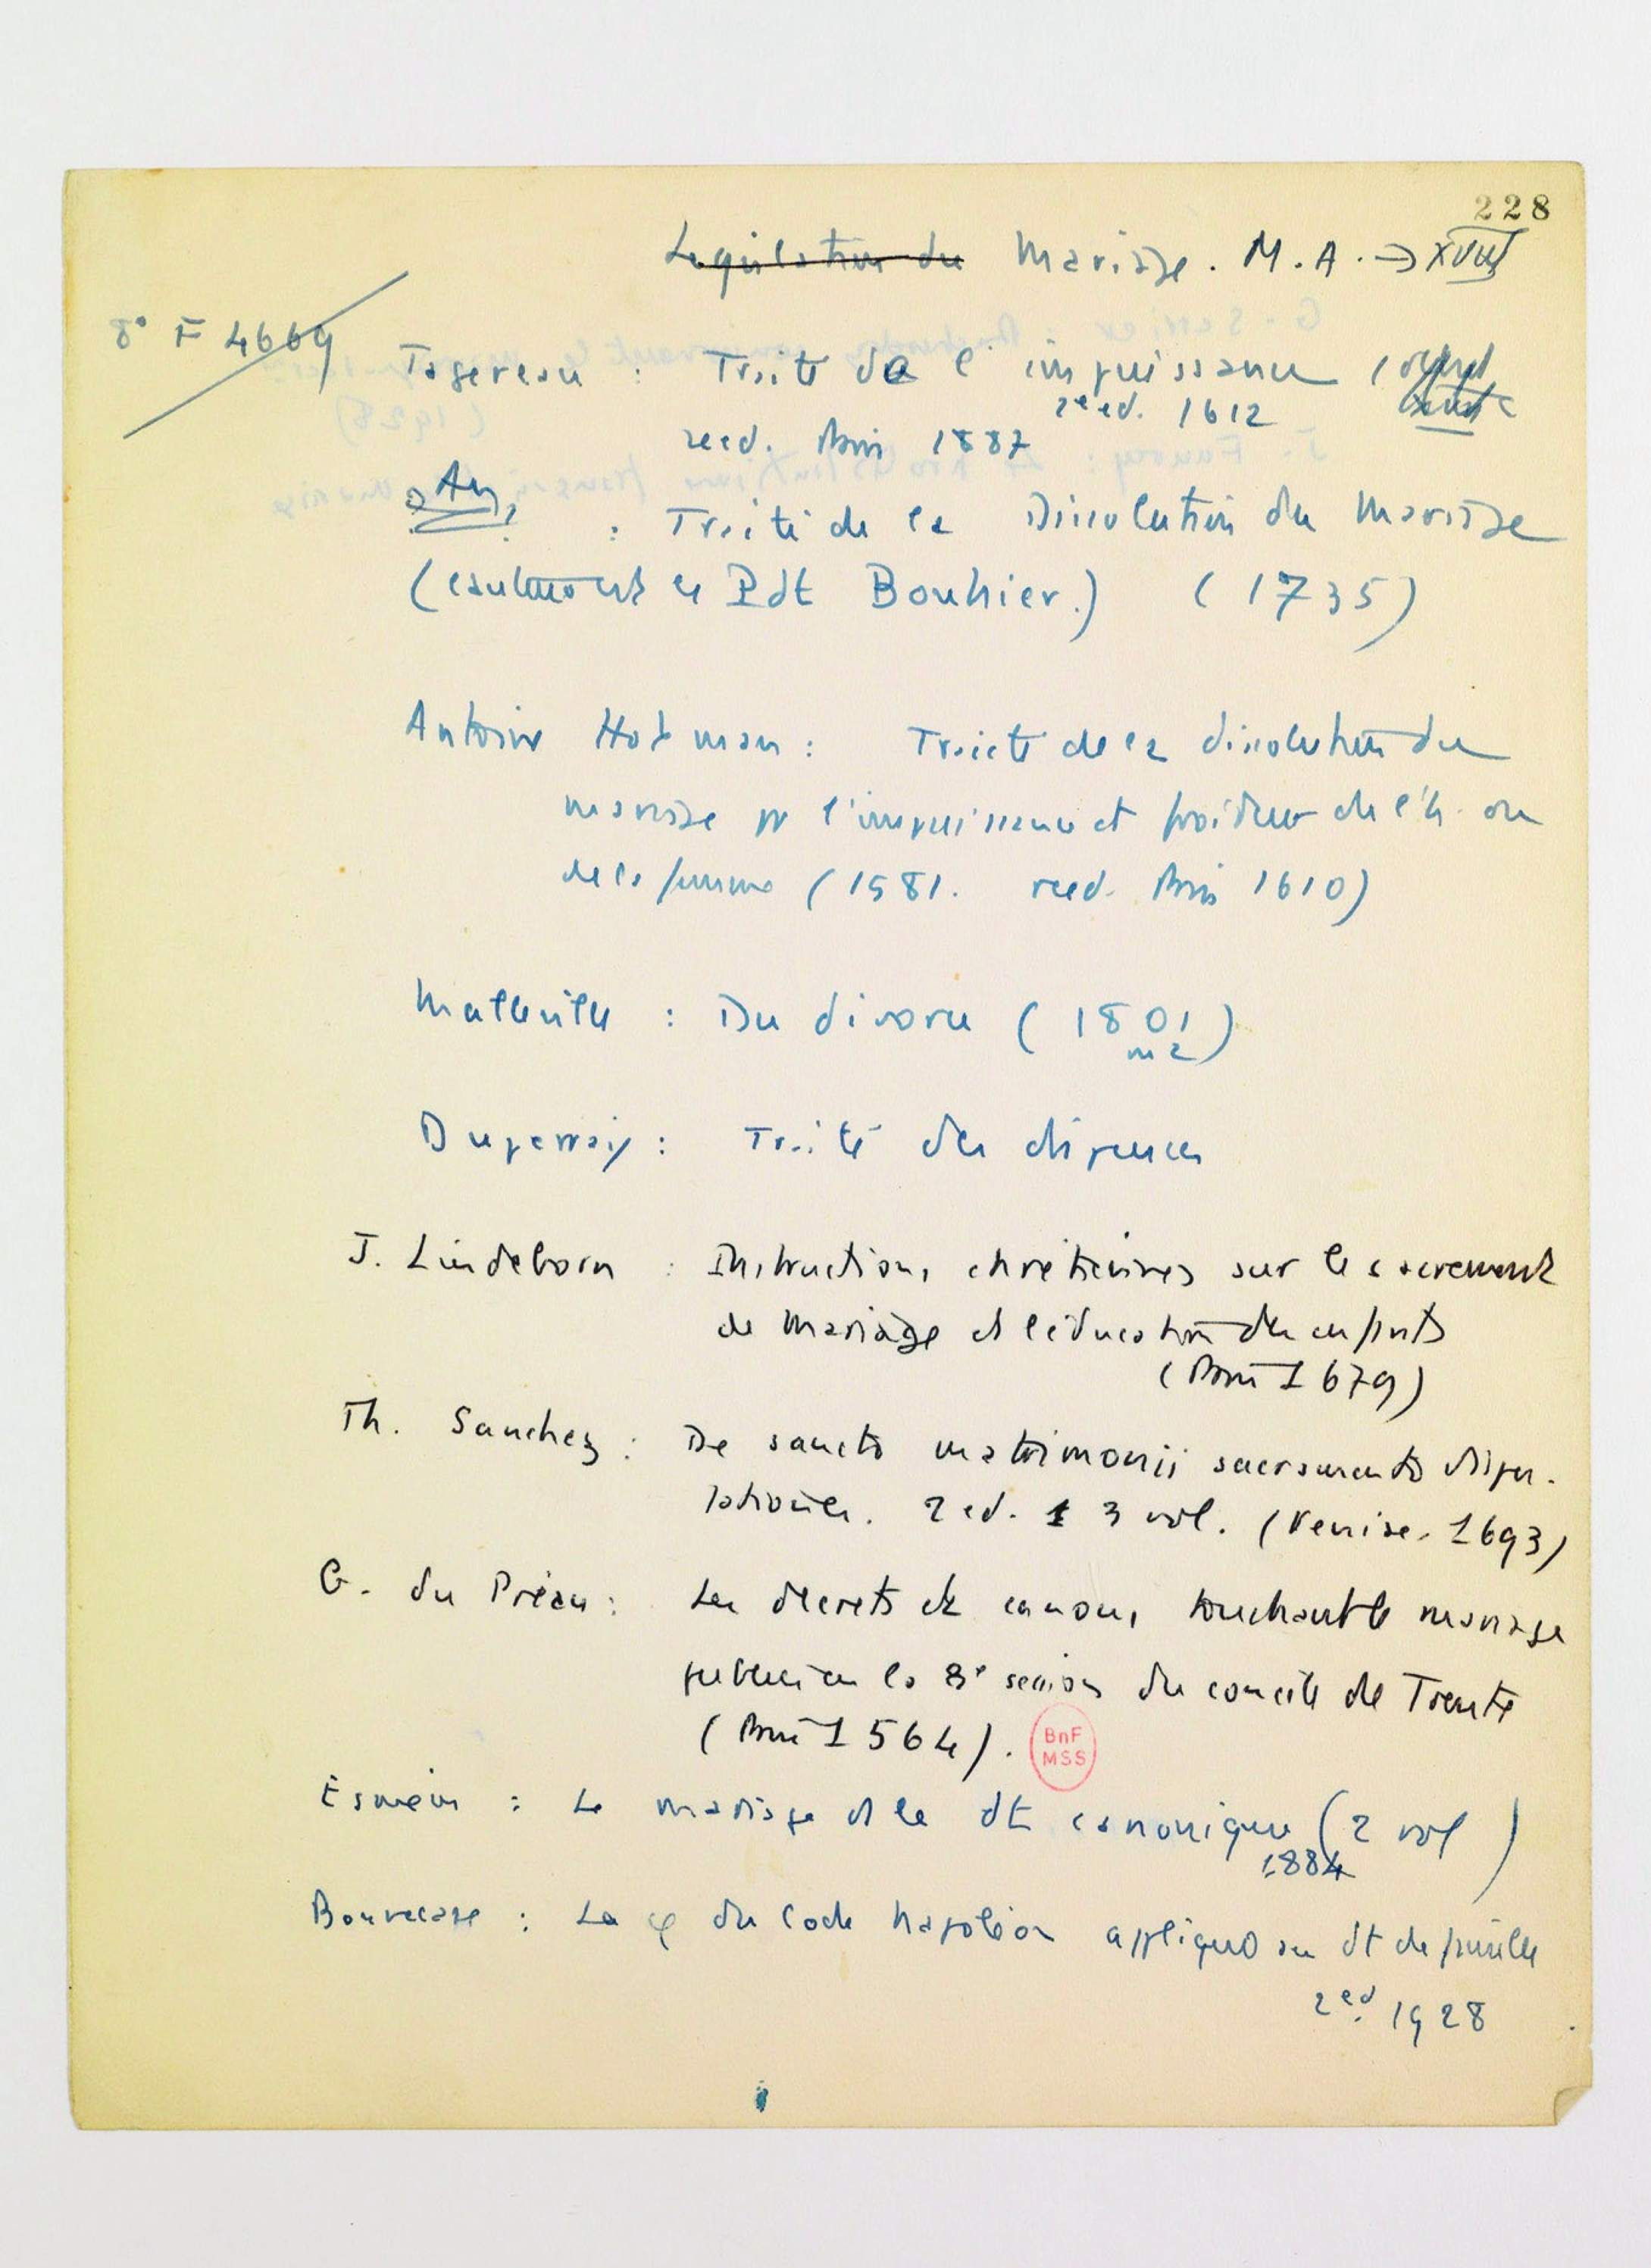 228
Legislation du Mariage. M.A. → XVIII
8° F 4669
Tagereau : Traité de l'impuissance
2e ed. 1612
reed. Paris 1887
An.
: Traité de la Dissolution du Mariage
( le Pdt Bouhier.) (1735)
Antoine Hotman : Traicté de la dissolution du
mariage pr l'impuissance et froideur de l'h. ou
de la femme (1581. reed. Paris 1610)
Malleville : Du divorce (1801
ou 2)
Duperray : Traité des dispenses
J. Lindeborn : Instructions chrétiennes sur le sacrement
de Mariage et l'éducation des enfants
(Paris 1679)
Th. Sanchez : De sancto matrimonii sacramento dispu-
tationes. 2 ed. 3 vol. (Venise. 1693)
G. du Préau : Les décrets et canons touchant le mariage
publiés en la 8e session du concile de Trente
(Paris 1564).
BnF
MSS
Esmein : Le mariage et le dt canonique (2 vol )
1884
Bonnecase : La φ du Code Napoléon appliqué au dt de famille
2ed. 1928